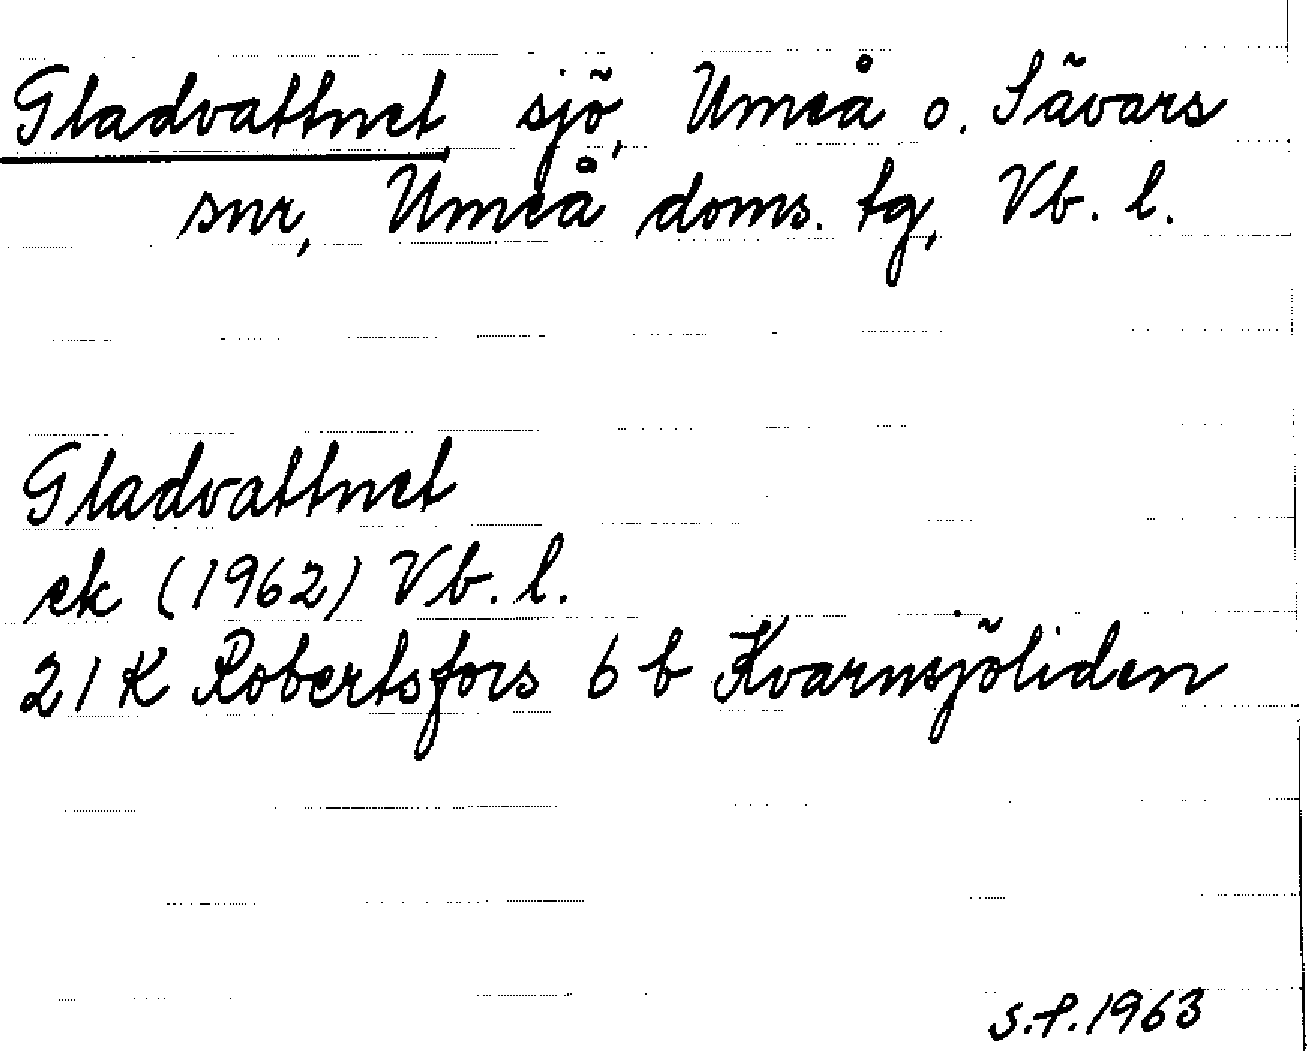 Gladvattnet, sjö, Umeå o. Sävars
snr, Umeå doms. tg, Vb. l.
Gladvattnet
ek (1962) Vb. l.
21 K Robertsfors 6 b Kvarnsjöliden
S.P. 1963